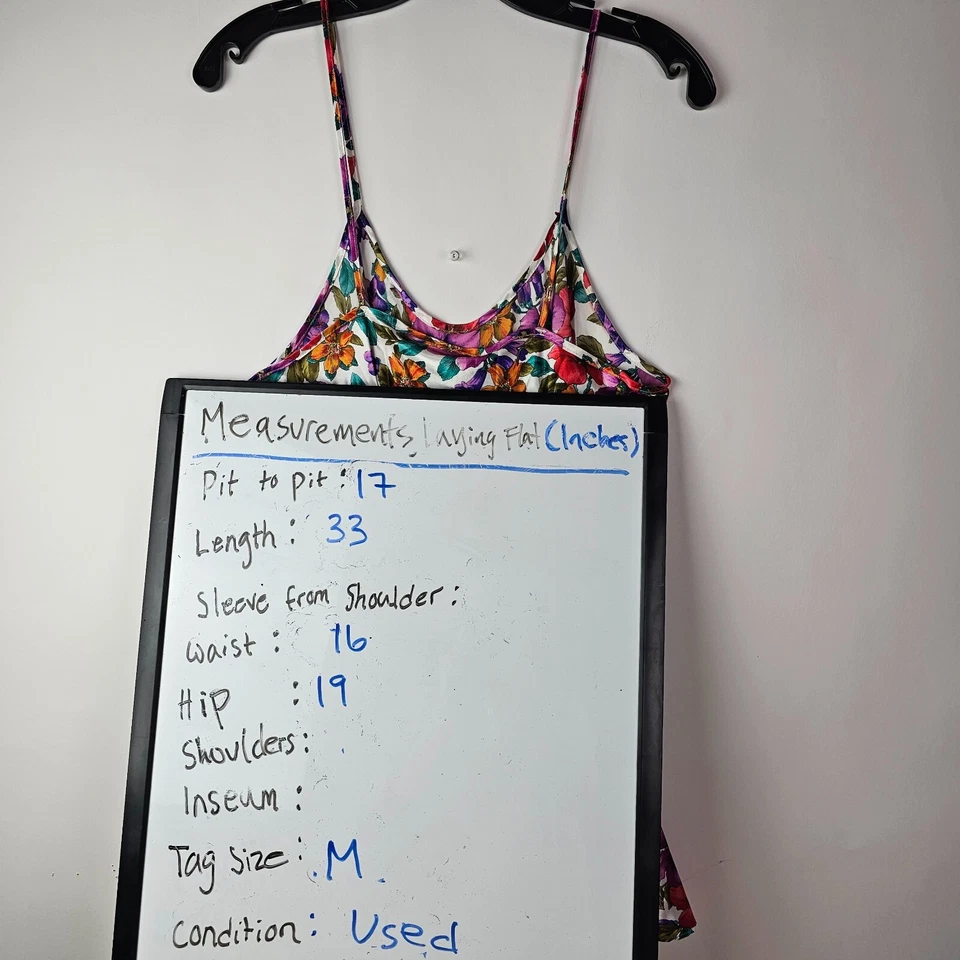 Measurements Laying Flat (Inches)
Pit to pit: 17
Length: 33
Sleeve from Shoulder:
Waist: 16
Hip: 19
Shoulders:
Inseum:
Tag Size: M
Condition: Used